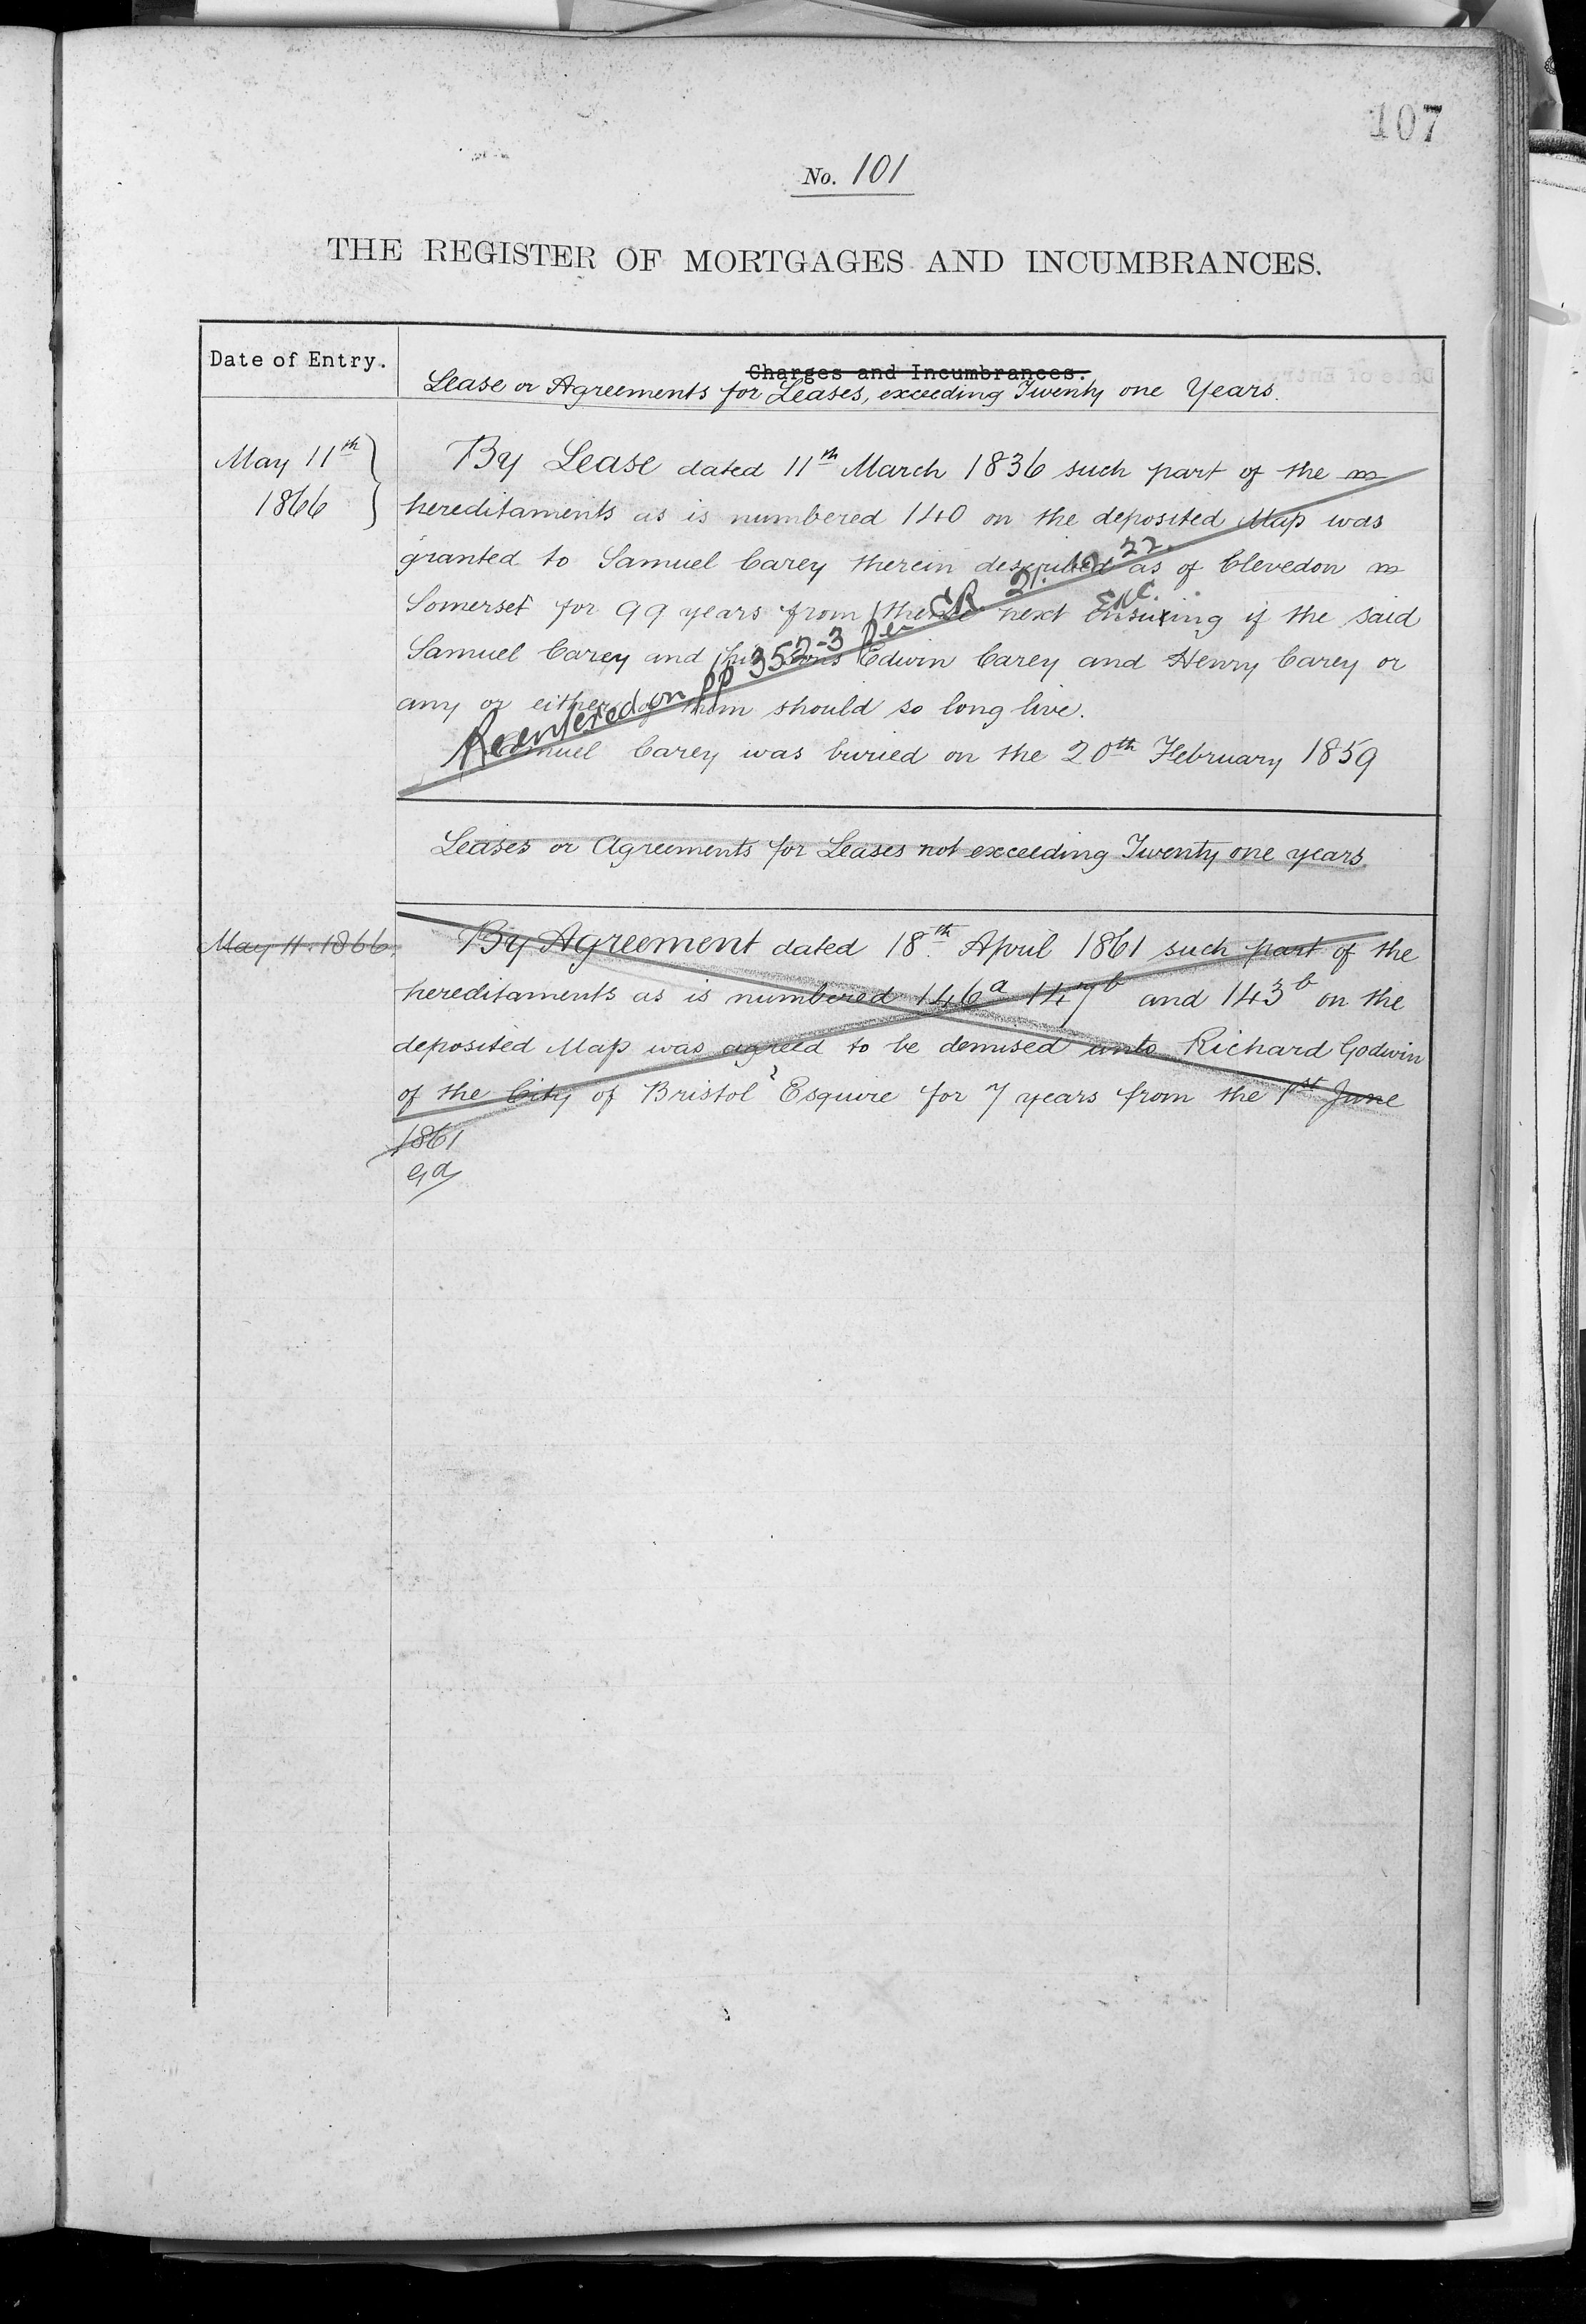 107
No. 101
THE REGISTER OF MORTGAGES AND INCUMBRANCES.
Date of Entry.
Charges and Incumbrances.
Lease or Agreements for Leases, exceeding Twenty one Years.
May 11th
1866
By Lease dated 11th March 1836 such part of the
hereditaments as is numbered 140 on the deposited Map was
granted to Samuel Carey therein described as of Clevedon
Somerset for 99 years from thence next ensuing if the said
Samuel Carey and his sons Edwin Carey and Henry Carey or
any or either of them should so long live.
Samuel Carey was buried on the 20th February 1859
Reentered on pp 352-3 Per CR 21.12.22.
Leases or Agreements for Leases not exceeding Twenty one years
May 11. 1866.
By Agreement dated 18th April 1861 such part of the
hereditaments as is numbered 146a 147b and 143b on the
deposited Map was agreed to be demised unto Richard Godwin
of the City of Bristol Esquire for 7 years from the 1st June
1861